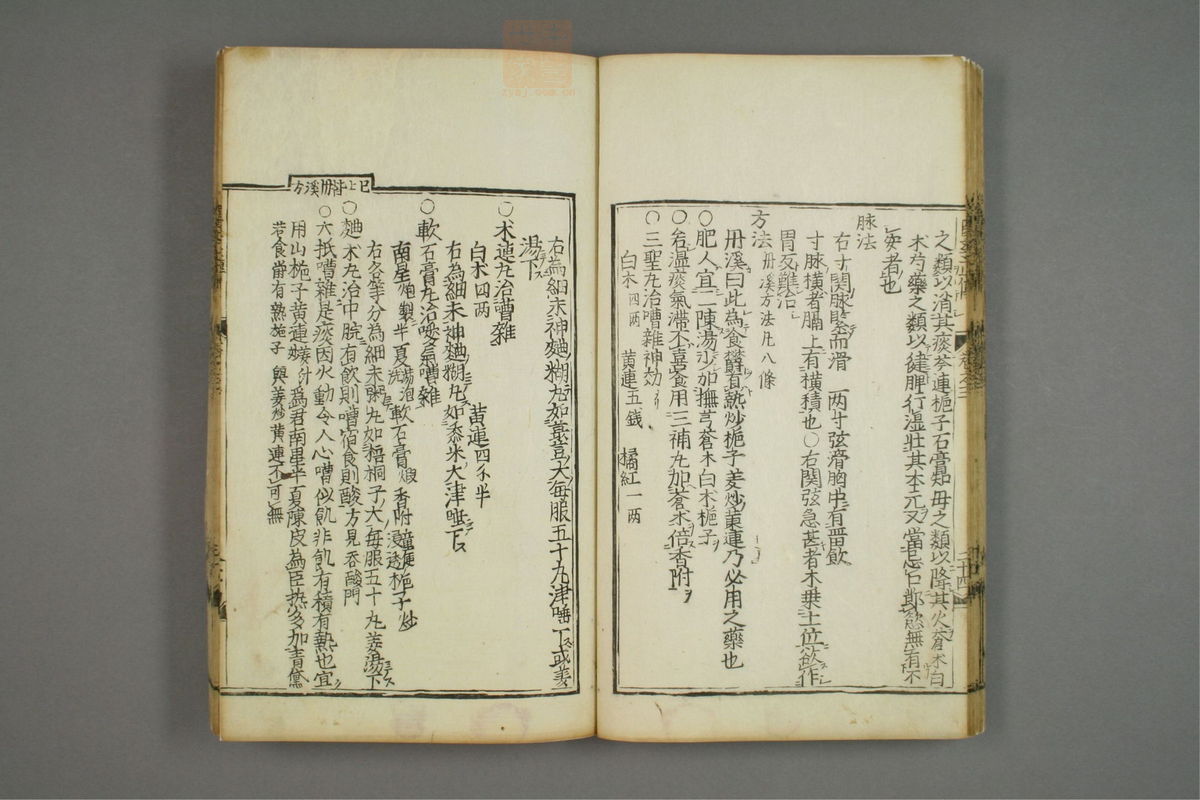 之類以消其痰芩連梔子石膏知母之類以降其火蒼朮白
朮芍藥之類以健脾行湿壮其本元又當忌口節慾無有不
安者也
脉法
右寸関脉緊而滑 両寸弦滑胸中有畄飲
寸脉横者膈上有横積也○右関弦急甚者木乗土位欲作
胃反難治
方法 丹溪方法凡八條
丹溪曰此為食欝有熱炒梔子姜炒黄連乃必用之藥也
○肥人宜二陳湯少加撫芎蒼朮白朮梔子
○若湿痰氣滞不喜食用三補丸加蒼朮倍香附
○三聖丸治嘈雜神効
白朮四两 黄連五錢 橘紅一两
右為細末神麯糊丸如菉豆大毎服五十丸津唾下或姜
湯下
○朮連丸治嘈雜
白朮四两 黄連四个半
右為細末神麯糊丸如黍米大津唾下
○軟石膏丸治噯氣嘈雜
南星炮製半夏湯泡洗軟石膏煅香附童便浸透梔子炒
右各等分為細末粥丸如梧桐子大毎服五十丸姜湯下
○麯朮丸治中脘有飲則嘈宿食則酸方見吞酸門
○大抵嘈雜是痰因火動令人心嘈似飢非飢有積有熱也宜
用山梔子黄連姜炒為君南星半夏陳皮為臣热多加青黛
若食欝有熱梔子與姜炒黄連不可無
已上皆丹溪方
二十四